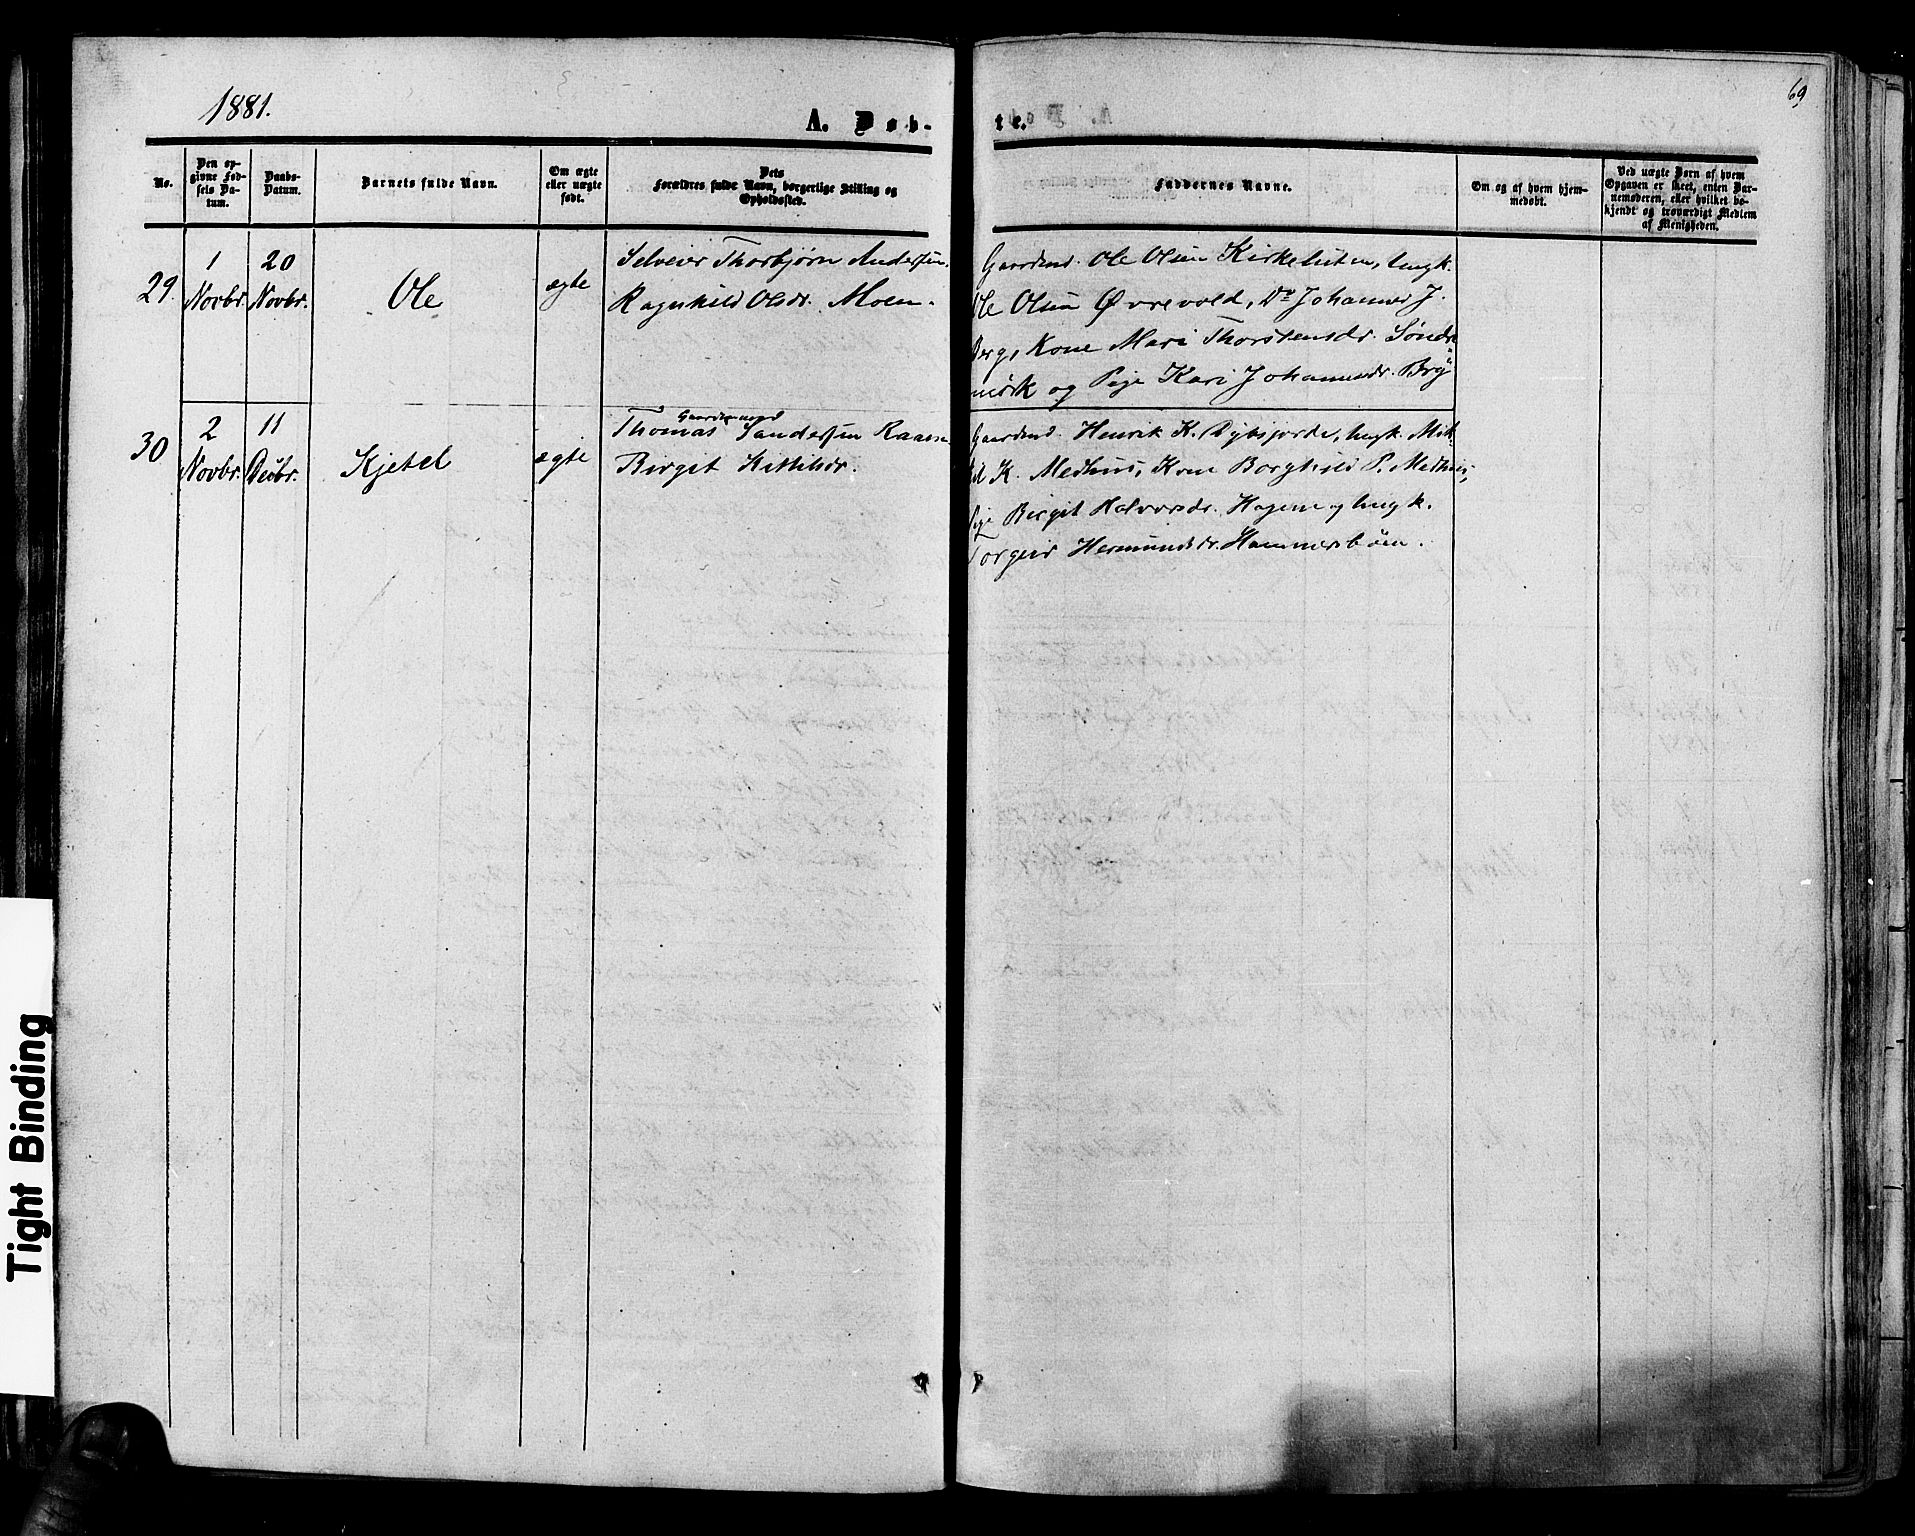 1881.
69
A. Døb-
te.
No.
Den op-
givne Fød-
sels Da-
tum.
Daabs-
Datum.
Barnets fulde Navn.
Om ægte
eller uægte
født.
Dets
Forældres fulde Navn, borgerlige Stilling og
Opholdssted.
Faddernes Navne.
Om og af hvem hjem-
medøbt.
Ved uægte Børn af hvem
Opgaven er skeet, enten Bar-
nemoderen, eller hvilket be-
kjendt og troværdigt Medlem
af Menigheden.
29.
1
Novbr.
20
Novbr.
Ole
ægte
Selveier Thorbjørn Andersen
Ragnhild Olsdr. Moen.
Gaardmd. Ole Olsen Kirkeluten, Ungk.
Ole Olsen Øvrevold, Do Johannes J.
Berg, Kone Mari Thorstensdr. Søndre
og Pige Kari Johannesdr.
30
2
Novbr.
11
Decbr.
Kjetel
ægte
Gaardmand
Thomas Sandersen
Birgit Kittilsdr.
Gaardmd. Henrik K. Dybsjorde, Ungk.
K. Medhus, Kone Borghild P. Medhus,
Pige Birgit Halvorsdr. Hagene og Ungk.
Torgeir Hermundsdr. Hammersbøen.
Tight Binding